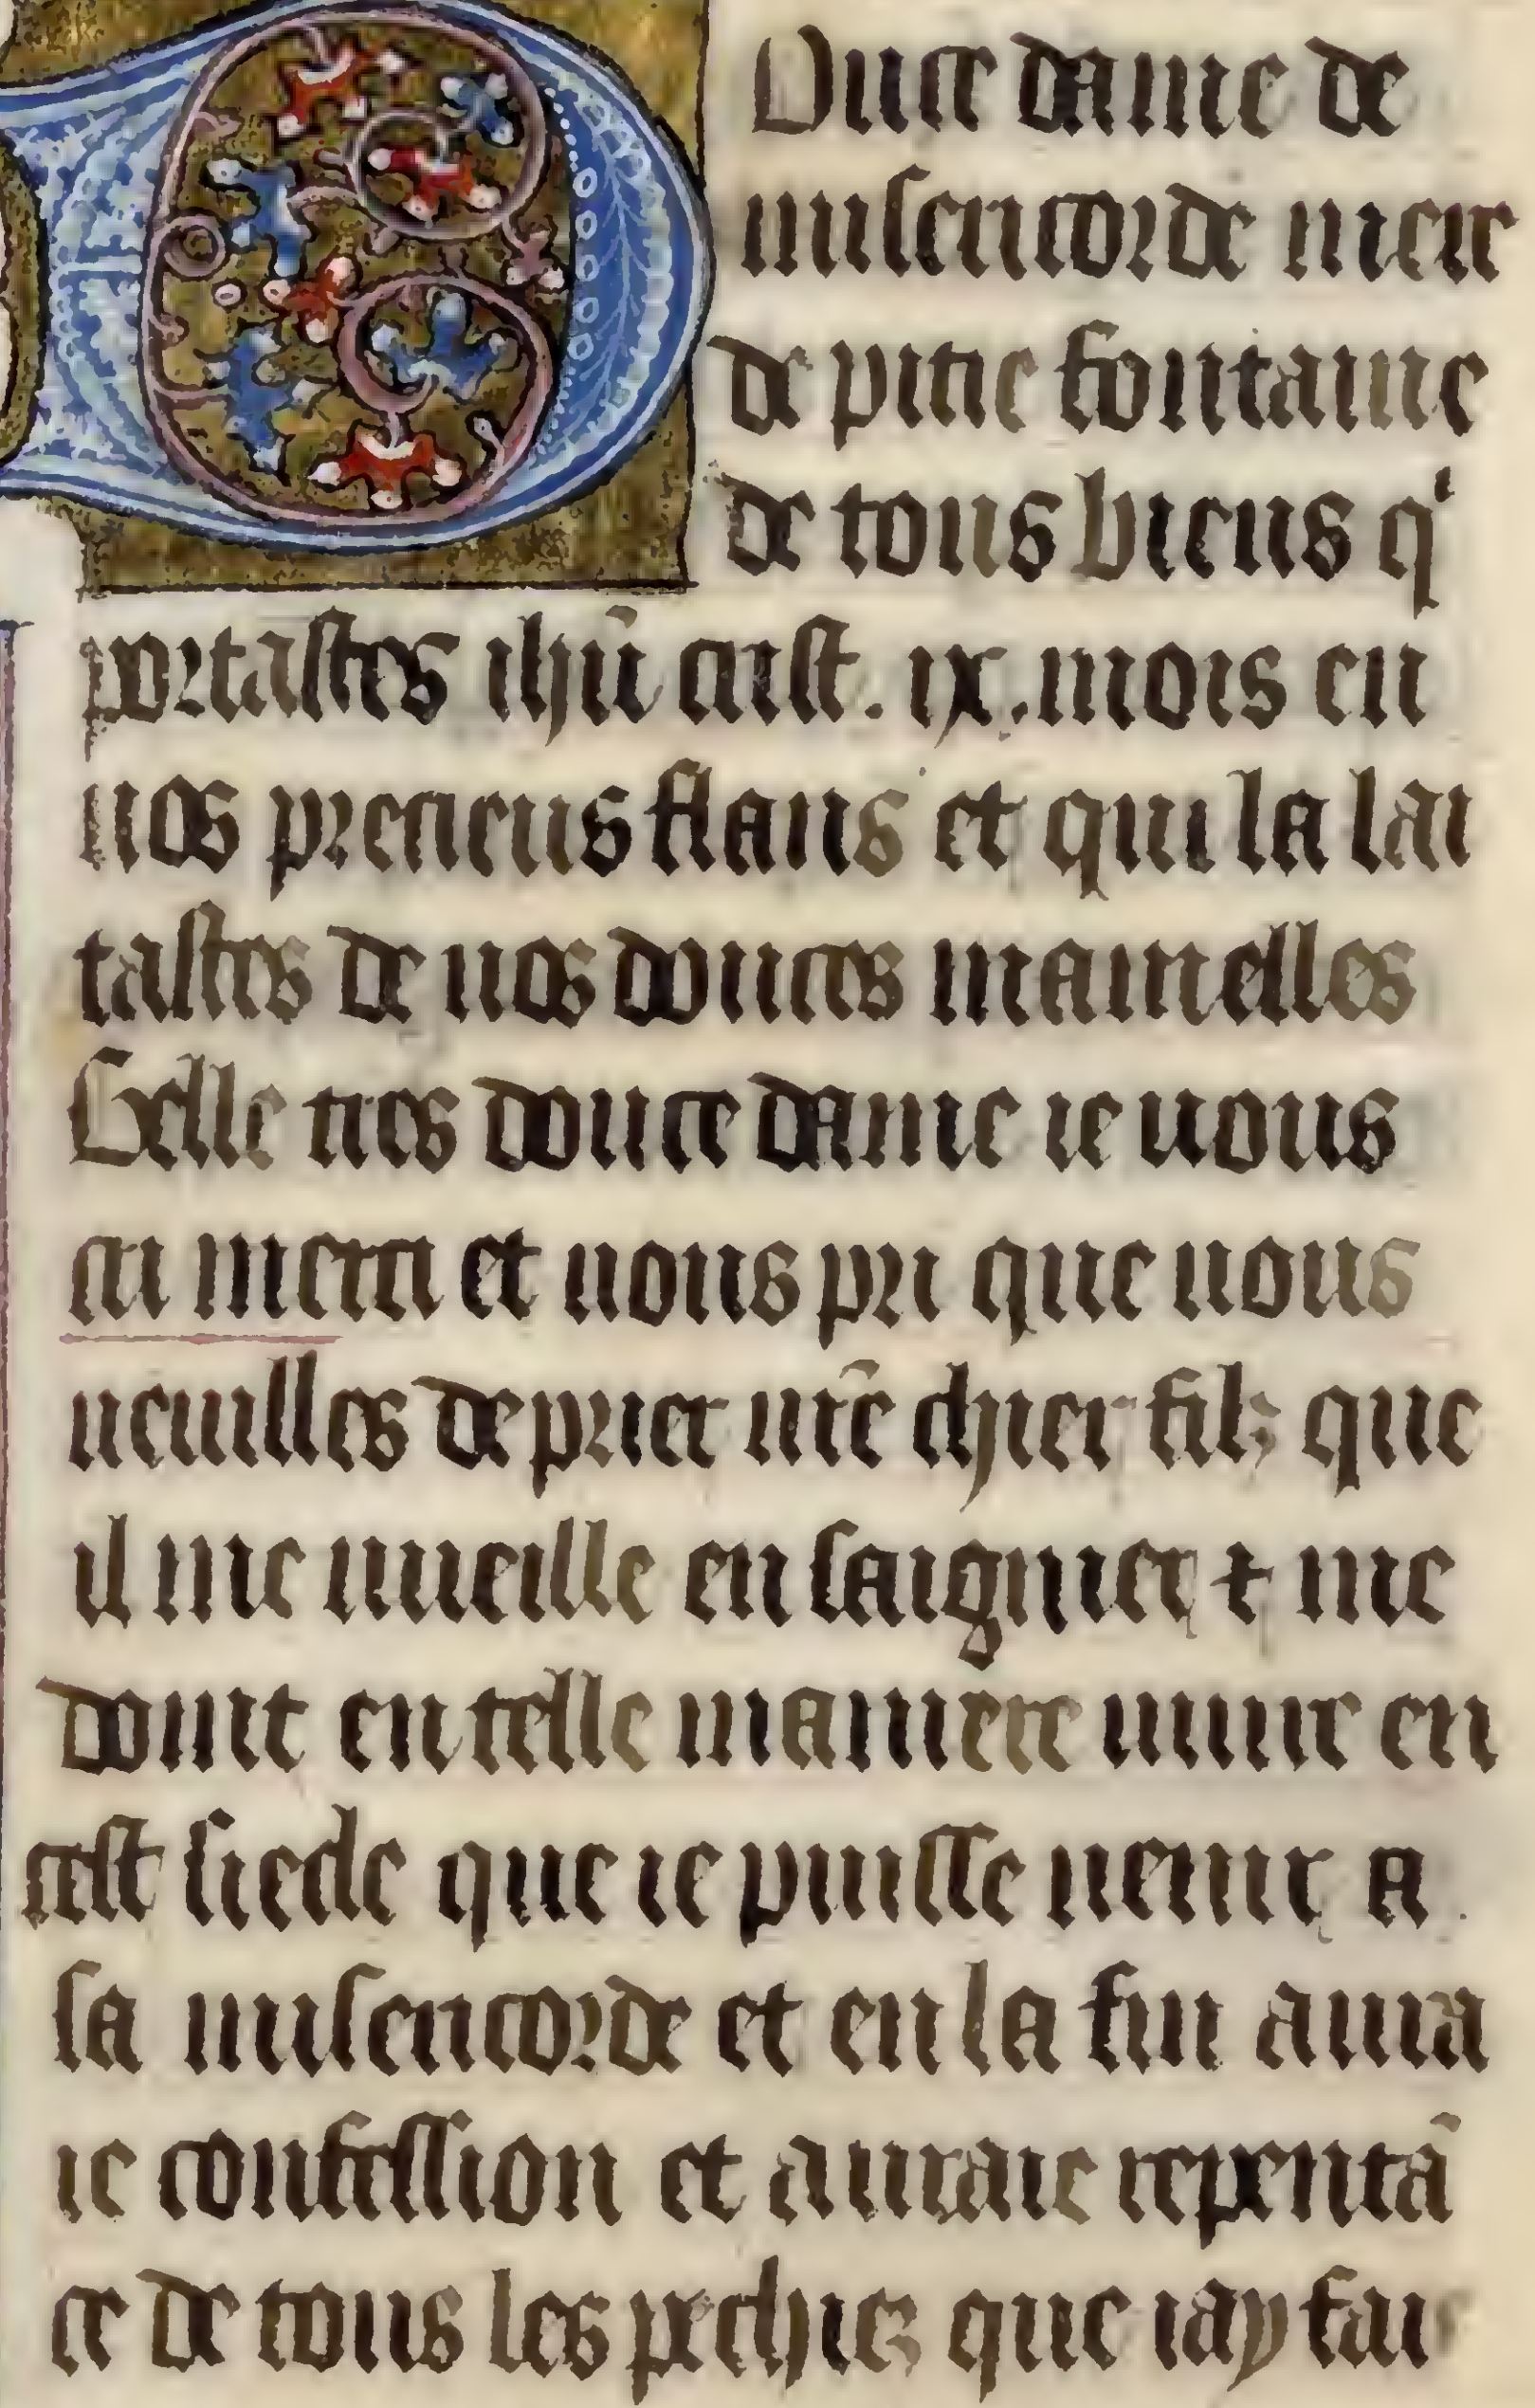 Duce dame de
misericorde mere
de pitie fontaine
de tous biens qⁱ
portastes ihū crist. ix. mois en
uos precieus flans et qui la lai
tastes de uos douces mamelles
Belle tres douce dame ie uous
cri merci et uous pri que uous
ueuilles deprier ur̄e chier filz que
il me uueille ensaignier ⁊ me
doint en telle maniere uiure en
cest siecle que ie puisse uenir a
sa misericorde et en la fin aura
ie confession et auraie repentā
ce de tous les pechiez que iay fai